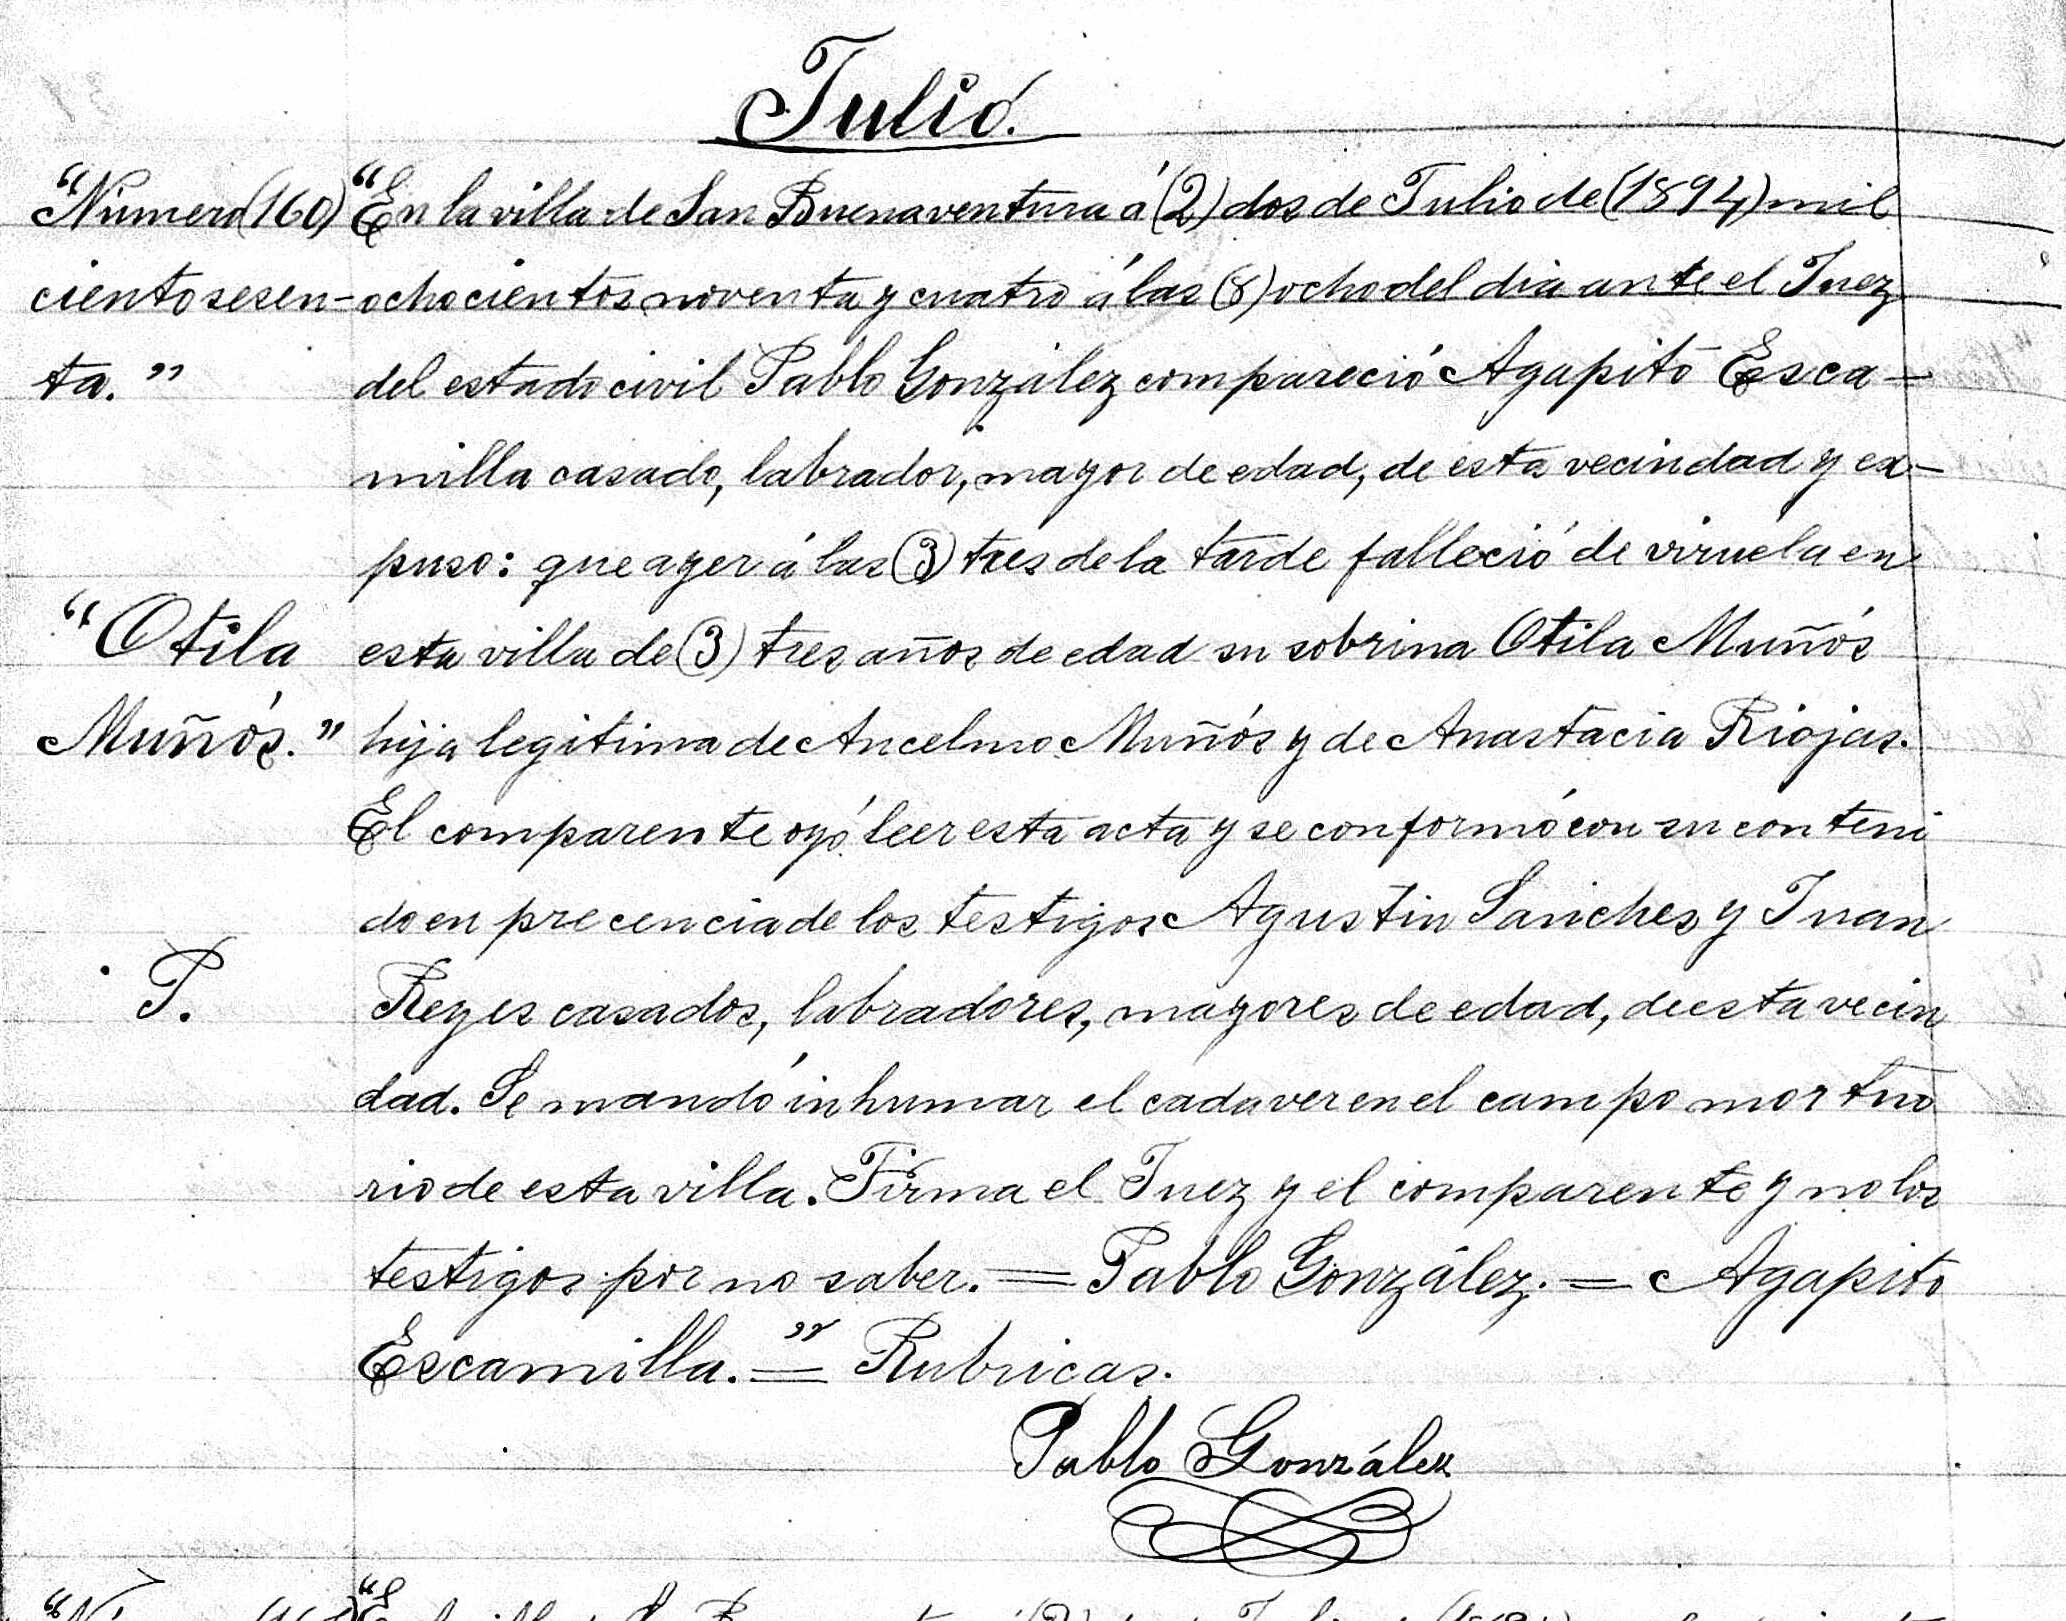 Julio.
"Número (160) "En la villa de San Buenaventura á (2) dos de Julio de (1894) mil
ciento sesen- ochocientos noventa y cuatro á las (8) ocho del dia ante el Juez
ta." del estado civil Pablo González compareció Agapito Esca-
milla casado, labrador, mayor de edad, de esta vecindad y ex-
puso: que ayer á las (3) tres de la tarde falleció de viruela en
"Otila esta villa de (3) tres años de edad su sobrina Otila Muñós
Muñós." hija legitima de Ancelmo Muñós y de Anastacia Riojas.
El comparente oyó leer esta acta y se conformó con su conteni
do en precencia de los testigos Agustin Sanches y Juan
P. Reyes casados, labradores, mayores de edad, de esta vecin
dad. Se mandó inhumar el cadaver en el campo mortuo
rio de esta villa. Firma el Juez y el comparente y no los
testigos por no saber. = Pablo González. = Agapito
Escamilla." = Rubricas.
Pablo González